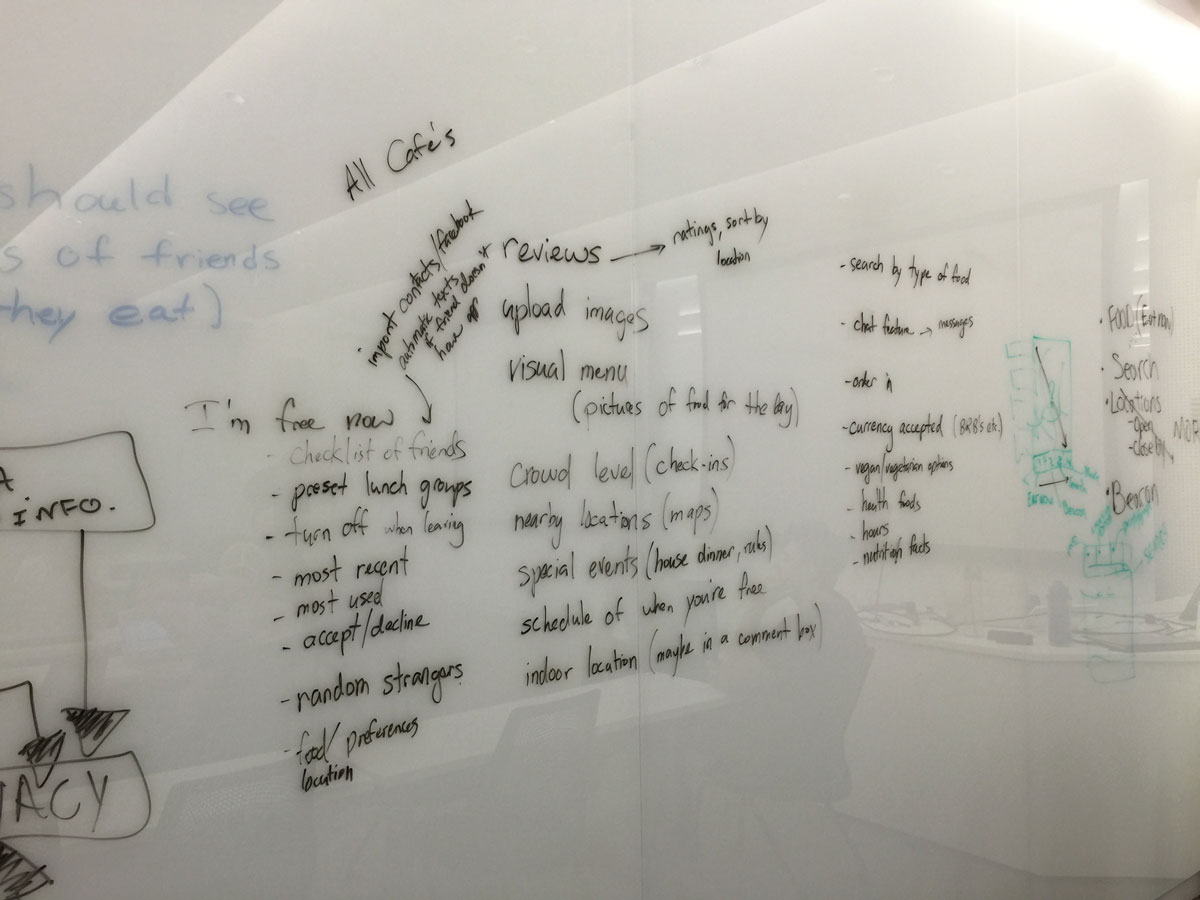 should see
s of friends
they eat)
A
INFO.
ACY
All Café's
import contacts/facebook
automatic texts
if friend doesn't
have app
I'm free now
- checklist of friends
- preset lunch groups
- turn off when leaving
- most recent
- most used
- accept/decline
- random strangers
- food/preferences
location
reviews → ratings, sort by
location
upload images
visual menu
(pictures of food for the day)
Crowd level (check-ins)
nearby locations (maps)
special events (house dinner, rules)
schedule of when you're free
indoor location (maybe in a comment box)
- search by type of food
- chat feature → messages
- order in
- currency accepted (BRB's etc.)
- vegan/vegetarian options
- health foods
- hours
- nutrition facts
• FOOD (Eat now)
• Search
• Locations
- open
- close by
• Beacon